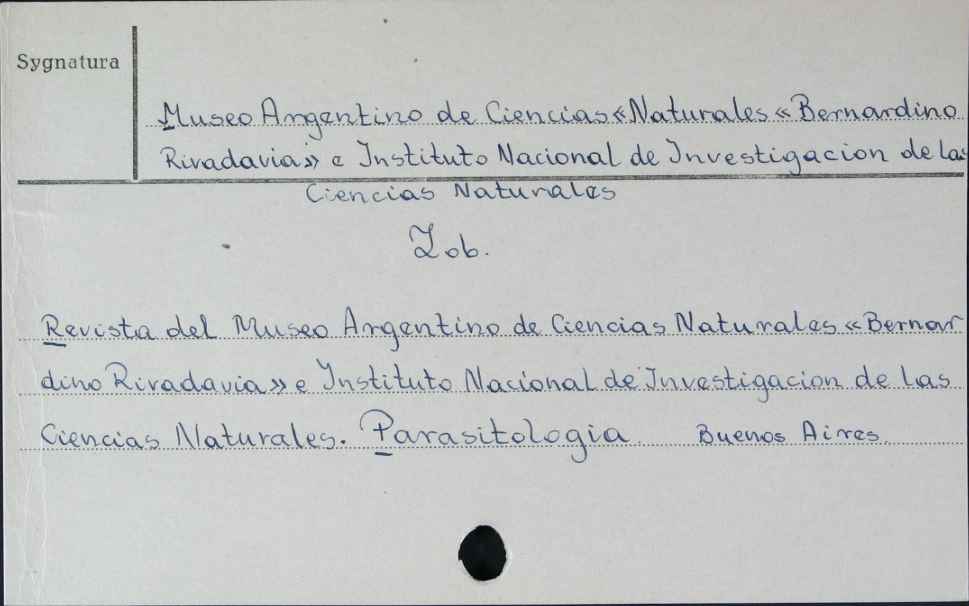 Sygnatura
Museo Argentino de Ciencias «Naturales « Bernardino
Rivadavia» e Instituto Nacional de Investigacion de las
Ciencias Naturales
Zob.
Revista del Museo Argentino de Ciencias Naturales «Bernar
dino Rivadavia» e Instituto Nacional de Investigacion de las
Ciencias Naturales. Parasitologia. Buenos Aires.